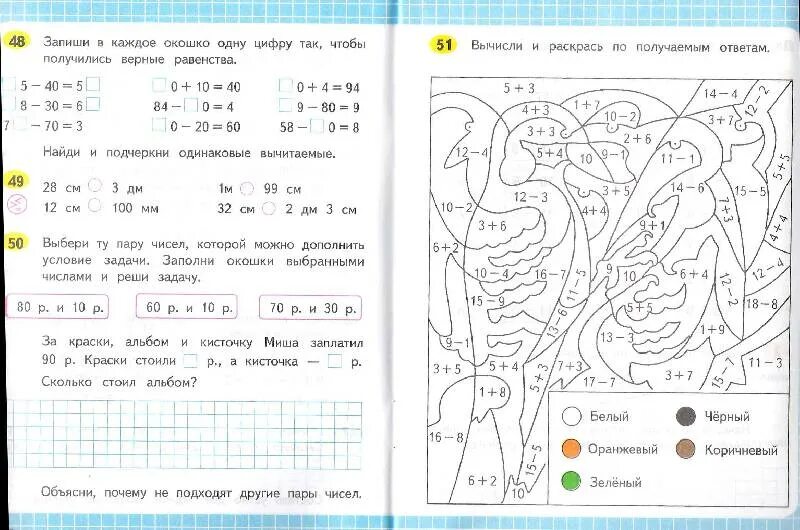 48 Запиши в каждое окошко одну цифру так, чтобы
получились верные равенства.
□ 5 – 40 = 5 □ □ 0 + 10 = 40 □ 0 + 4 = 94
□ 8 – 30 = 6 □ 84 – □ 0 = 4 □ 9 – 80 = 9
7 □ – 70 = 3 □ 0 – 20 = 60 58 – □ 0 = 8
Найди и подчеркни одинаковые вычитаемые.
49 28 см ○ 3 дм 1м ○ 99 см
12 см ○ 100 мм 32 см ○ 2 дм 3 см
50 Выбери ту пару чисел, которой можно дополнить
условие задачи. Заполни окошки выбранными
числами и реши задачу.
80 р. и 10 р. 60 р. и 10 р. 70 р. и 30 р.
За краски, альбом и кисточку Миша заплатил
90 р. Краски стоили □ р., а кисточка — □ р.
Сколько стоил альбом?
Объясни, почему не подходят другие пары чисел.
51 Вычисли и раскрась по получаемым ответам.
5 + 3
14 – 4
12 – 2
4 + 3
1 + 7
10 – 2
3 + 7
3 + 3
2 + 6
12 – 4
5 + 4
10
9 – 1
11 – 1
5 + 5
12 – 3
3 + 5
14 – 6
15 – 5
10 – 2
4 + 4
1 + 3
3 + 6
9 + 1
4 + 4
6 + 2
10 – 4
16 – 7
11 – 5
9
10
6 + 4
12 – 4
12 – 2
15 – 9
5 + 5
18 – 8
13 – 6
13 – 3
1 + 9
9 – 1
3 + 5
5 + 4
5 + 3
7 + 3
17 – 7
3 + 7
15 – 7
11 – 3
1 + 8
16 – 8
15 – 5
6 + 2
10
Белый Чёрный
Оранжевый Коричневый
Зелёный